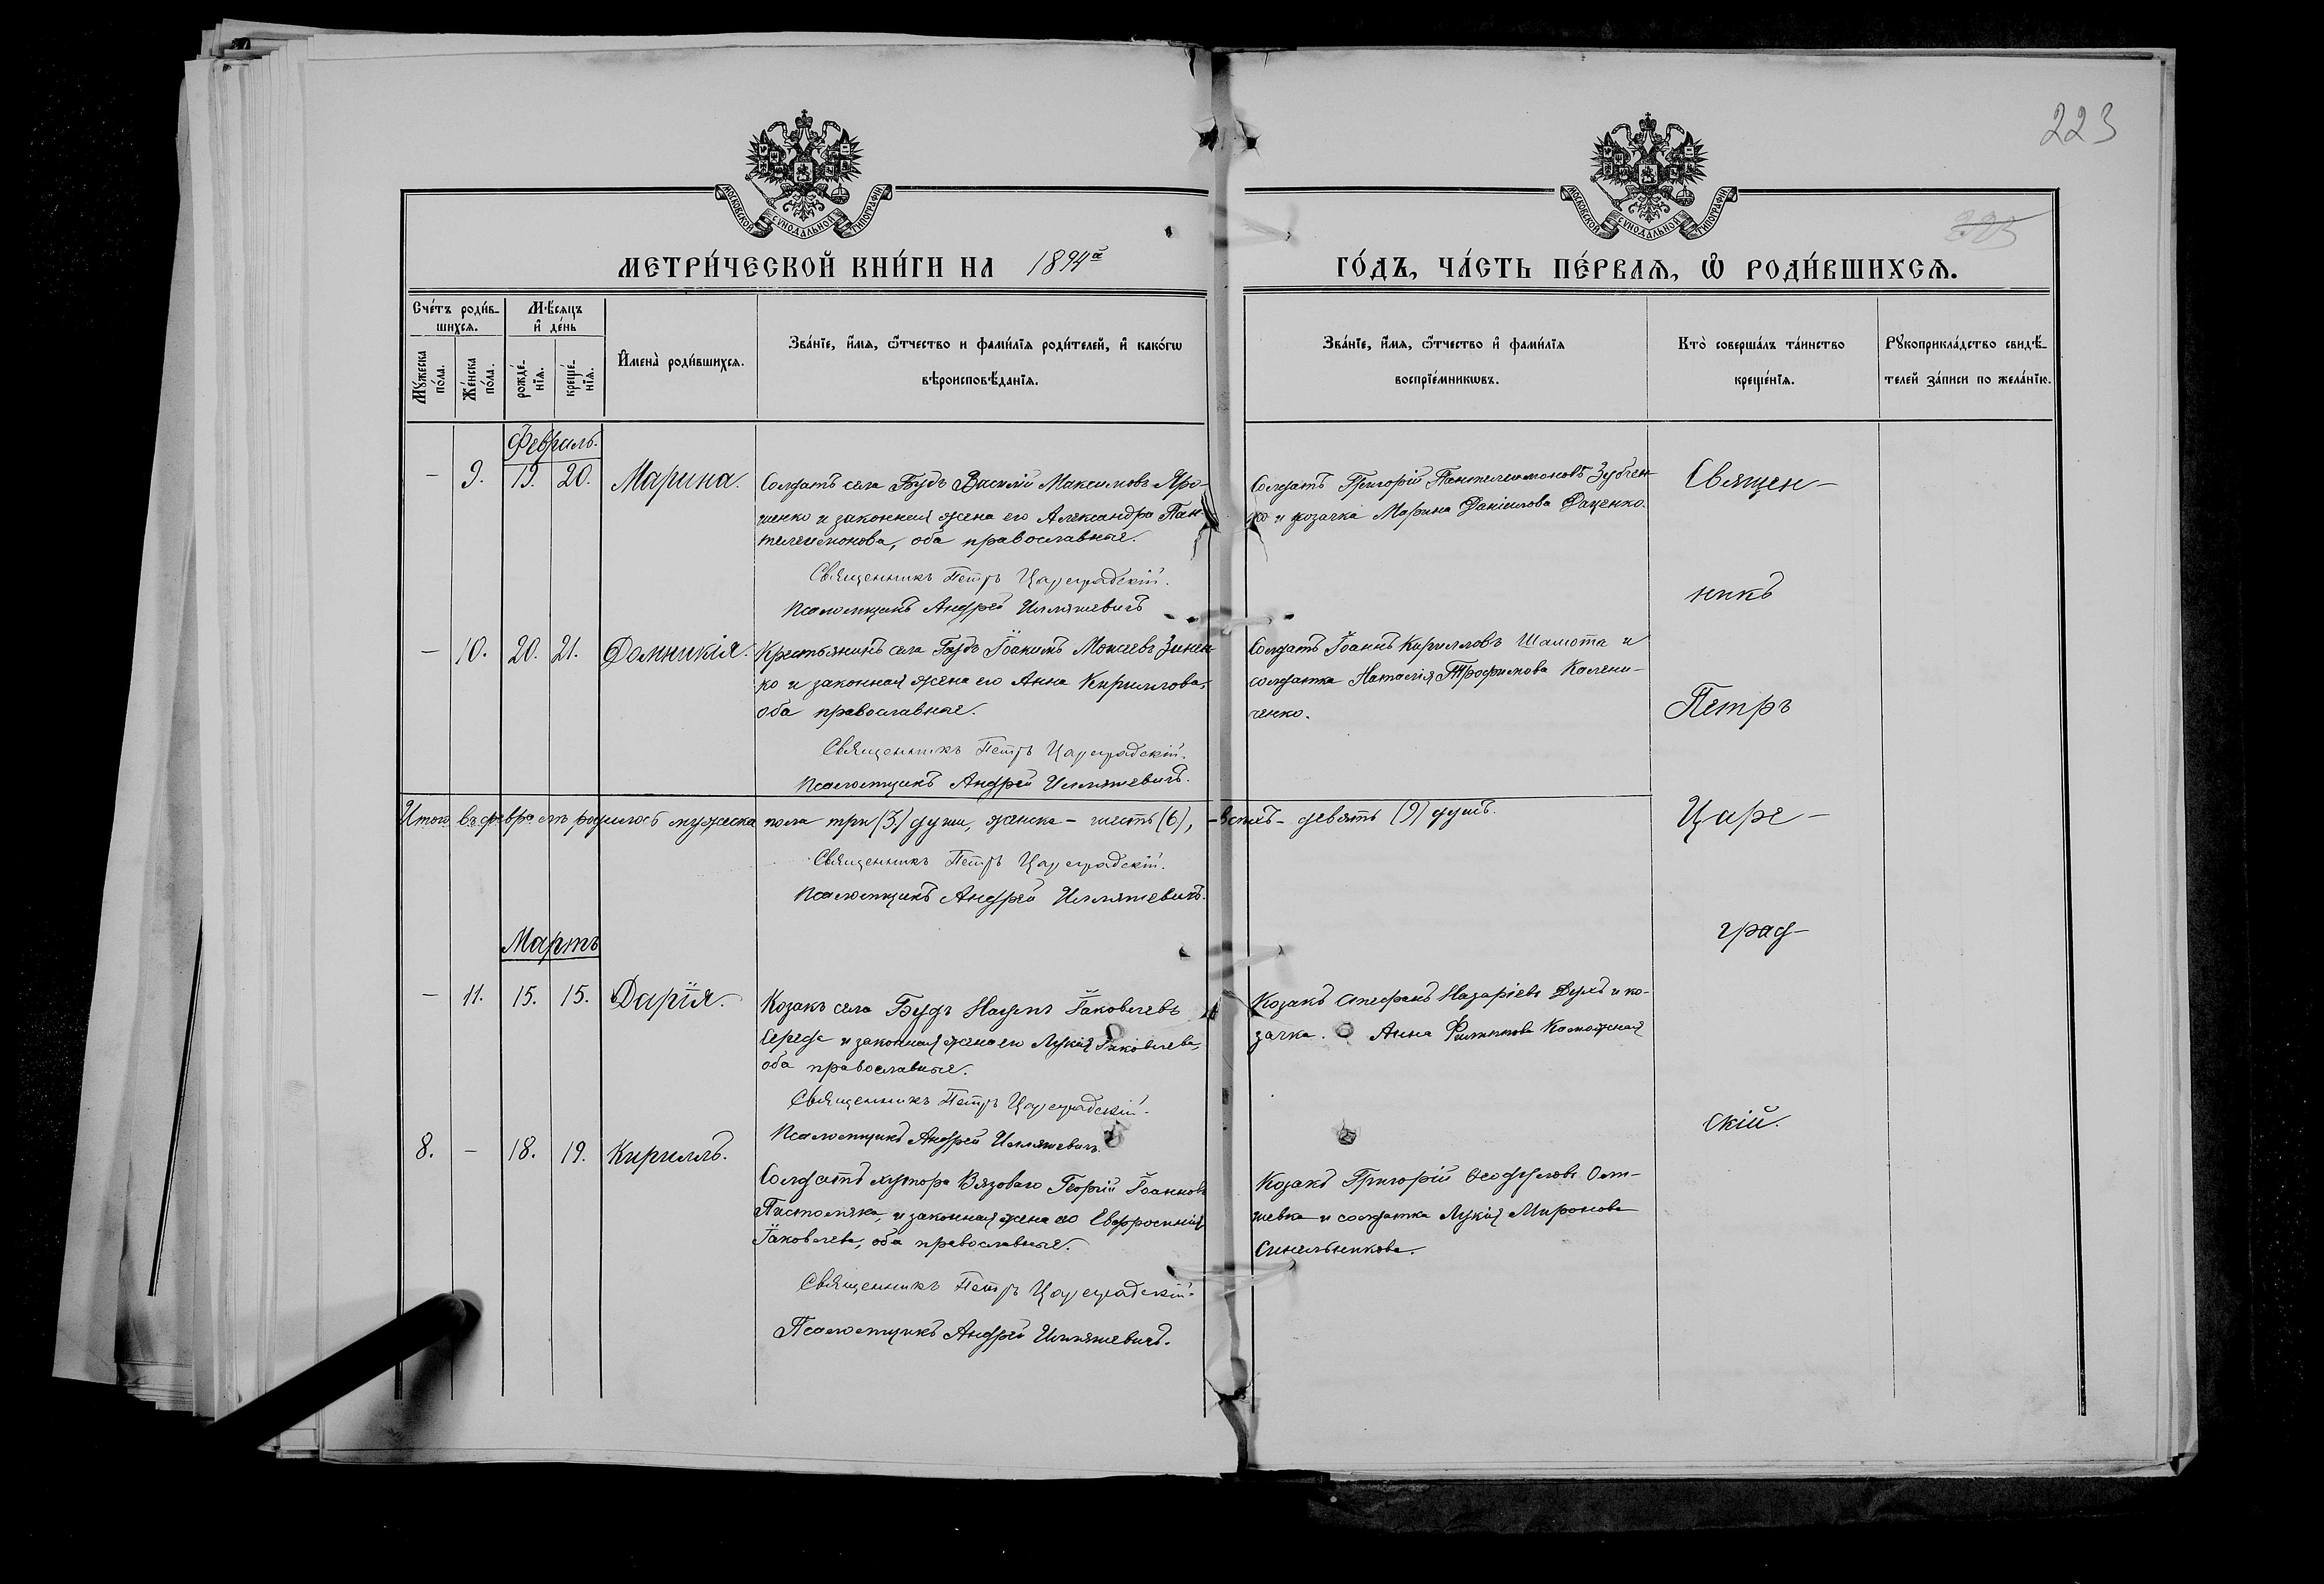 223
МОСКОВСКОЙ СУНОДАЛЬНОЙ ТИПОГРАФІИ
МОСКОВСКОЙ СУНОДАЛЬНОЙ ТИПОГРАФІИ
МЕТРИ́ЧЕСКОЙ КНИ́ГИ НА 1894й
ГО́ДЪ, ЧА́СТЬ ПЕ́РВАѦ, Ѡ҆ РОДИ́ВШИХСѦ.
Сче́тъ роди́в-
шихсѧ.
Мꙋ́жеска по́ла.
Же́нска по́ла.
Мѣ́сяцъ
и҆ де́нь
рожде́-
нїѧ.
креще́-
нїѧ.
И҆мена̀ роди́вшихсѧ.
Зва́нїе, и҆́мѧ, ѻ҆́тчество и фами́лїѧ роди́телей, и҆ како́гѡ
вѣроисповѣ́данїѧ.
Зва́нїе, и҆́мѧ, ѻ҆́тчество и҆ фами́лїѧ
воспрїе́мникѡвъ.
Кто̀ соверша́лъ та́инство
креще́нїѧ.
Рꙋкоприкла́дство свидѣ́-
телей за́писи по жела́нїю.
Февраль.
— 9. 19. 20. Марина.
Солдатъ села Будъ Василій Максимовъ Яро-
шенко и законная жена его Александра Пан-
телеимонова, оба православные.
Священникъ Петръ Цареградскій.
Псаломщикъ Андрей Илляшевичъ
Солдатъ Григорій Пантелеимоновъ Зубчен-
ко и козачка Марина Даніилова Даценко.
— 10. 20. 21. Домникія.
Крестьянинъ села Будъ Іоакимъ Моисеевъ Зинен-
ко и законная жена его Анна Кириллова,
оба православные.
Священникъ Петръ Цареградскій.
Псаломщикъ Андрей Илляшевичъ.
Солдатъ Іоаннъ Кирилловъ Шамота и
солдатка Наталія Трофимова Калени-
ченко.
Итого въ февралѣ родилось мужеска пола три (3) души, женска – шесть (6), – всѣхъ – девять (9) душъ.
Священникъ Петръ Цареградскій.
Псаломщикъ Андрей Илляшевичъ.
Мартъ
— 11. 15. 15. Дарія.
Козакъ села Будъ Наумъ Іаковлевъ
Середа и законная жена его Лукія Іаковлева,
оба православные.
Священникъ Петръ Цареградскій.
Псаломщикъ Андрей Илляшевичъ.
Козакъ Стефанъ Назаріевъ и ко-
зачка. Анна Филиппова
8. — 18. 19. Кириллъ.
Солдатъ хутора Вязоваго Георгій Іоанновъ
и законная жена его Евфросинія
Іаковлева, оба православные.
Священникъ Петръ Цареградскій.
Псаломщикъ Андрей Илляшевичъ.
Козакъ Григорій Ѳеодуловъ
и солдатка Лукія Миронова
Синельникова.
Священ-
никъ
Петръ
Царе-
град-
скій.